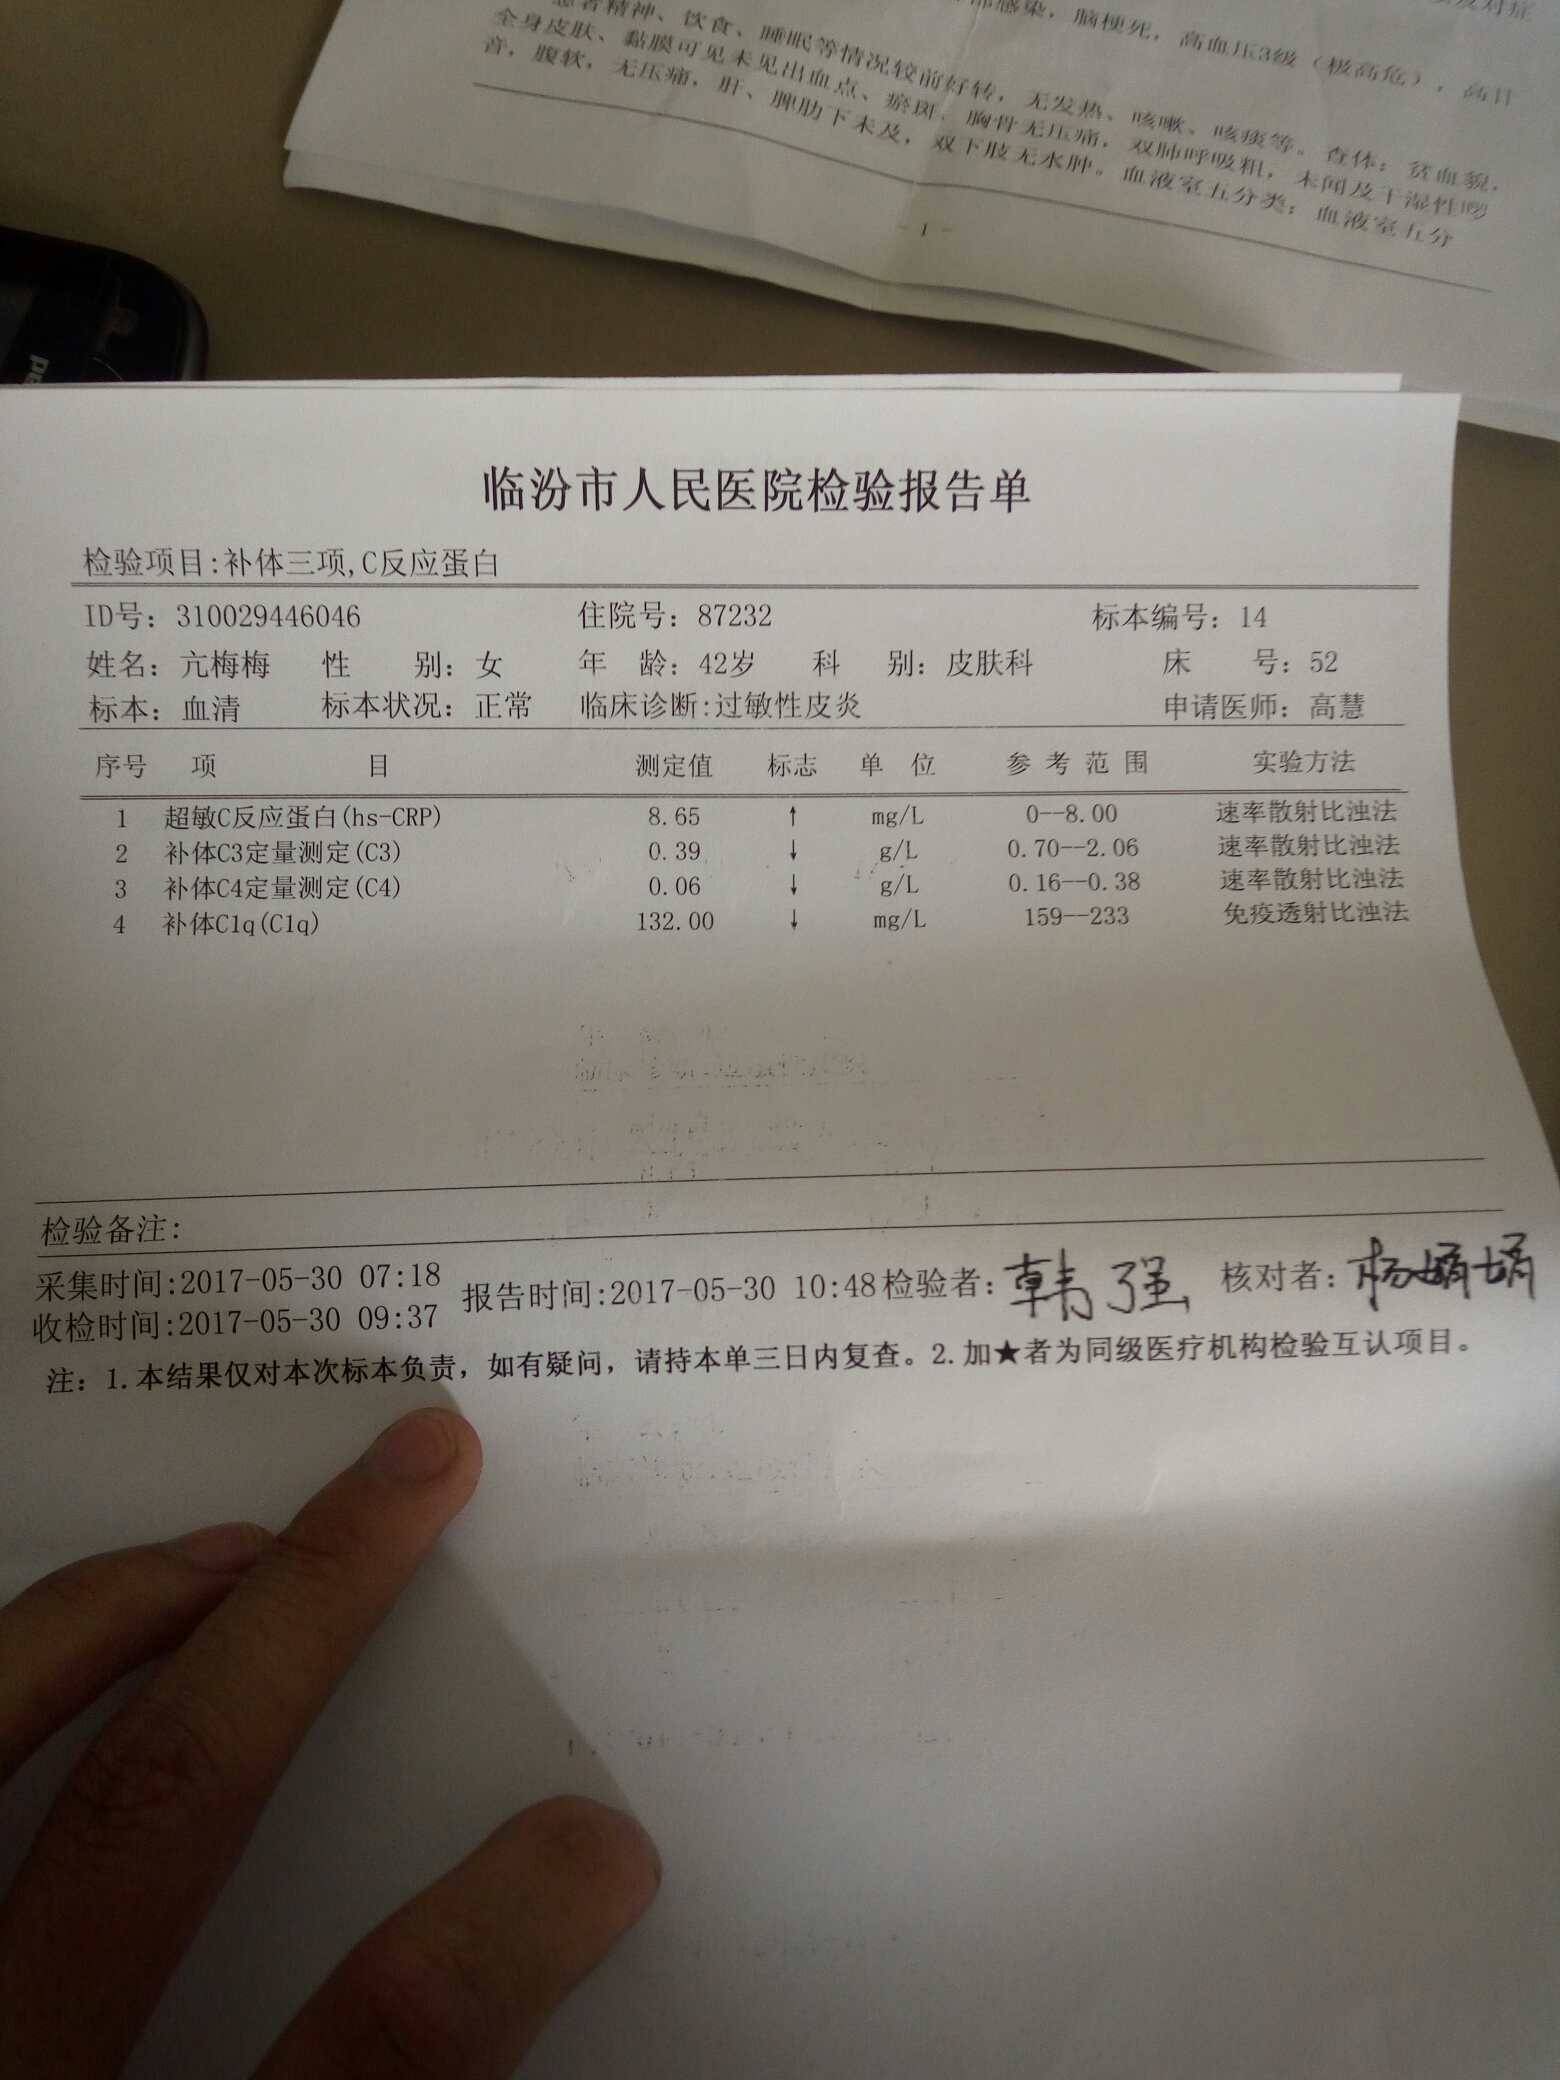 肺感染，脑梗死，高血压3级（极高危），高
患者精神、饮食、睡眠等情况较前好转，无发热、咳嗽、咳痰等。查体：贫血貌，
全身皮肤、黏膜可见未见出血点、瘀斑，胸骨无压痛，双肺呼吸粗，未闻及干湿性啰
音，腹软，无压痛，肝、脾肋下未及，双下肢无水肿。血液室五分类：血液室五分
- 1 -
临汾市人民医院检验报告单
检验项目:补体三项,C反应蛋白
ID号：310029446046 住院号：87232 标本编号：14
姓名：亢梅梅 性 别：女 年 龄：42岁 科 别：皮肤科 床 号：52
标本：血清 标本状况：正常 临床诊断:过敏性皮炎 申请医师：高慧
序号 项 目 测定值 标志 单 位 参 考 范 围 实验方法
1 超敏C反应蛋白(hs-CRP) 8.65 ↑ mg/L 0--8.00 速率散射比浊法
2 补体C3定量测定(C3) 0.39 ↓ g/L 0.70--2.06 速率散射比浊法
3 补体C4定量测定(C4) 0.06 ↓ g/L 0.16--0.38 速率散射比浊法
4 补体C1q(C1q) 132.00 ↓ mg/L 159--233 免疫透射比浊法
检验备注:
采集时间:2017-05-30 07:18
收检时间:2017-05-30 09:37
报告时间:2017-05-30 10:48 检验者: 韩强 核对者: 杨娟娟
注：1.本结果仅对本次标本负责，如有疑问，请持本单三日内复查。2.加★者为同级医疗机构检验互认项目。